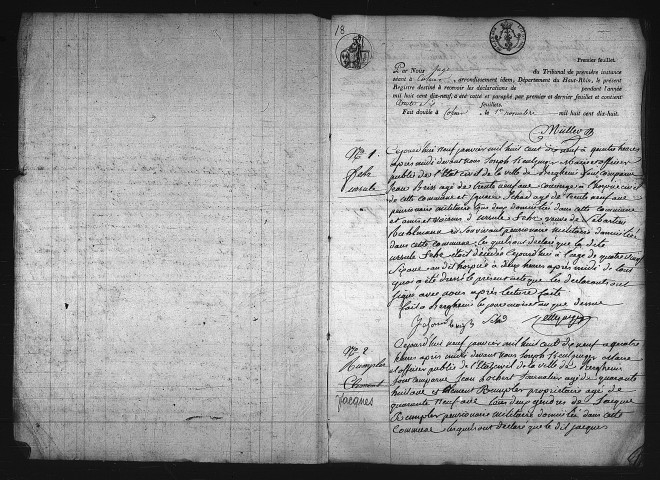 18
Premier feuillet.
Par Nous Juge du Tribunal de première instance
séant à Colmar arrondissement idem, Département du Haut-Rhin, le présent
Registre destiné à recevoir les déclarations de pendant l'année
mil huit cent dix-neuf, a été cotté et paraphé par premier et dernier feuillet et contient
feuillets.
Fait double à Colmar le 1er novembre mil huit cent dix-huit.
Müller
N° 1.
Fehr
ursule
Cejourd'hui neuf janvier mil huit Cent dix neuf à quatre heures
après midi devant nous Joseph Maire officier
public de l'Etat Civil de la ville de Bergheim sont Comparus
Jean Heiss agé de trente neuf ans Concierge à l'hospice Civil
de cette Commune et Ignace Schad agé de trente neuf ans
pensionnaire militaire tous deux domiciliés dans cette Commune
et amis et voisins d'ursule Fehr veuve de Sébastien
Kuhlmann de Son vivant pensionnaire militaire domicilié
dans cette Commune lesquels ont déclaré que la dite
ursule Fehr était décédée Cejourd'hui à l'age de quatre vingt
ans au dit hospice à deux heures après midi de tout
quoi a été dressé le présent acte que les déclarants ont
signé avec nous après lecture faite
fait à Bergheim les jour mois et an que dessus
Schad
N° 2
Rumpler
Clément
Jacques
Cejourd'hui neuf janvier mil huit Cent dix neuf à quatre
heures après midi devant nous Joseph Maire
et officier public de l'Etat Civil de la ville de Bergheim
sont Comparus Jean journalier agé de quarante
huit ans et Clément Rumpler propriétaire agé de
quarante neuf ans tous deux gendres de Jacques
Rumpler pensionnaire militaire domicilié dans cette
Commune lesquels ont déclaré que le dit jacques